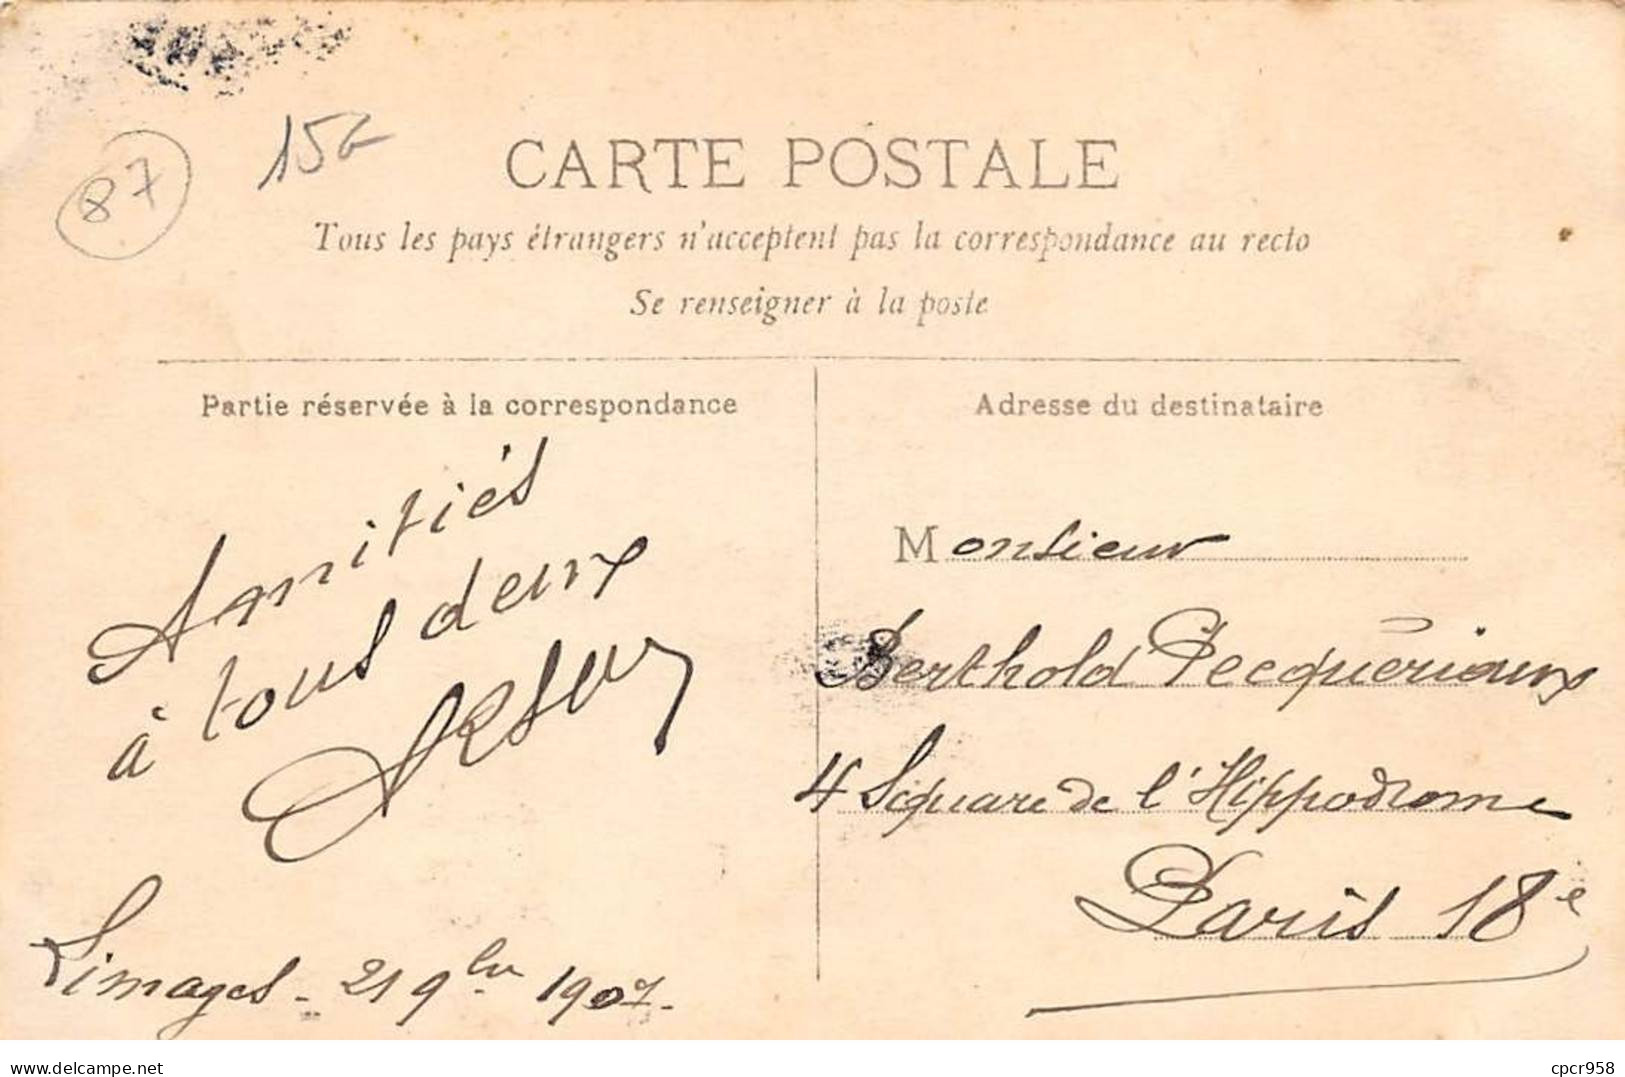 87
15G
CARTE POSTALE
Tous les pays étrangers n'acceptent pas la correspondance au recto
Se renseigner à la poste
Partie réservée à la correspondance
Adresse du destinataire
Amitiés
à tous deux
Limoges - 21 9bre 1907.
Monsieur
Berthold Pecquériaux
4 Square de l'Hippodrome
Paris 18e
www.delcampe.net
cpcr958